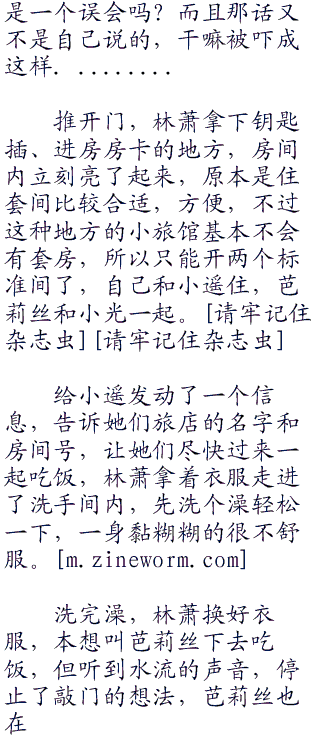 是一个误会吗？而且那话又
不是自己说的，干嘛被吓成
这样．........
推开门，林萧拿下钥匙
插、进房房卡的地方，房间
内立刻亮了起来，原本是住
套间比较合适，方便，不过
这种地方的小旅馆基本不会
有套房，所以只能开两个标
准间了，自己和小遥住，芭
莉丝和小光一起。[请牢记住
杂志虫][请牢记住杂志虫]
给小遥发动了一个信
息，告诉她们旅店的名字和
房间号，让她们尽快过来一
起吃饭，林萧拿着衣服走进
了洗手间内，先洗个澡轻松
一下，一身黏糊糊的很不舒
服。[m.zineworm.com]
洗完澡，林萧换好衣
服，本想叫芭莉丝下去吃
饭，但听到水流的声音，停
止了敲门的想法，芭莉丝也
在